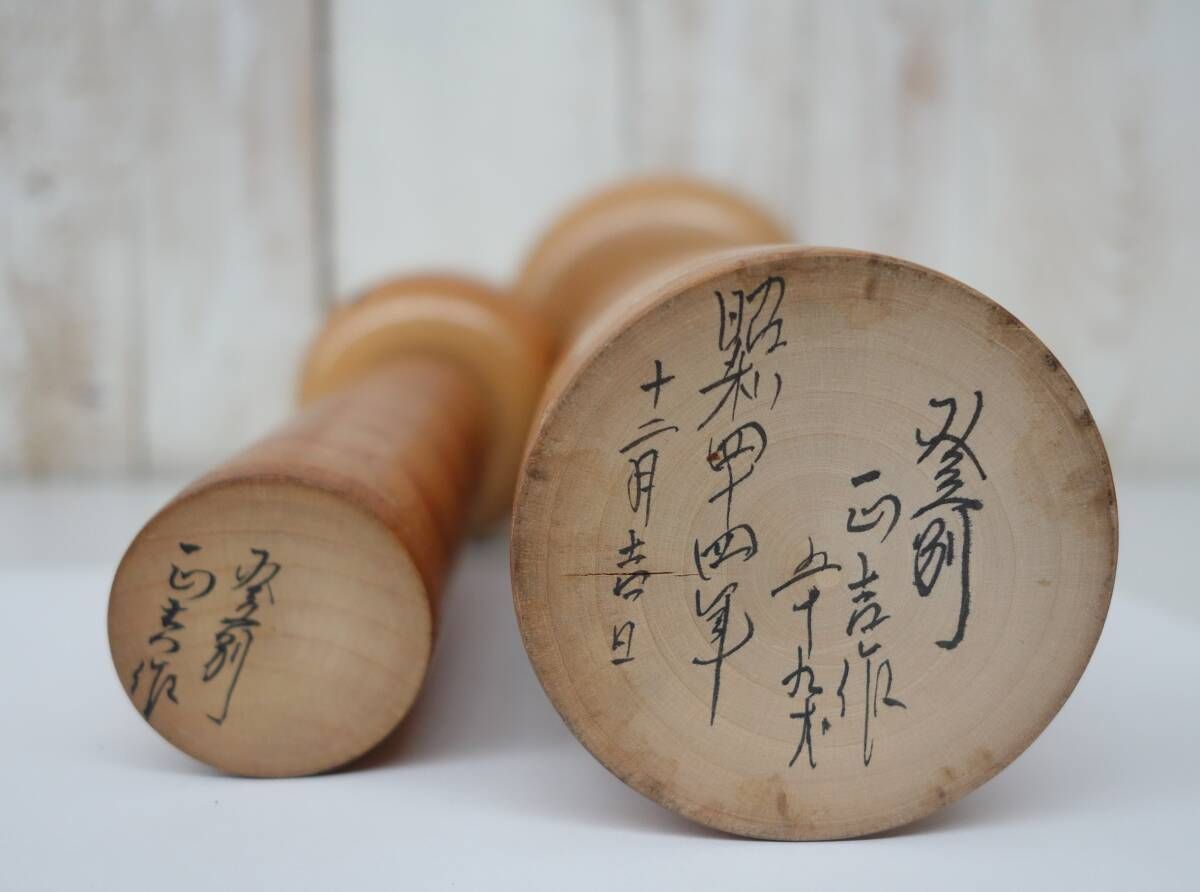 登別
正吉作
五十九才
昭和四十四年
十二月吉日
登別
正吉作